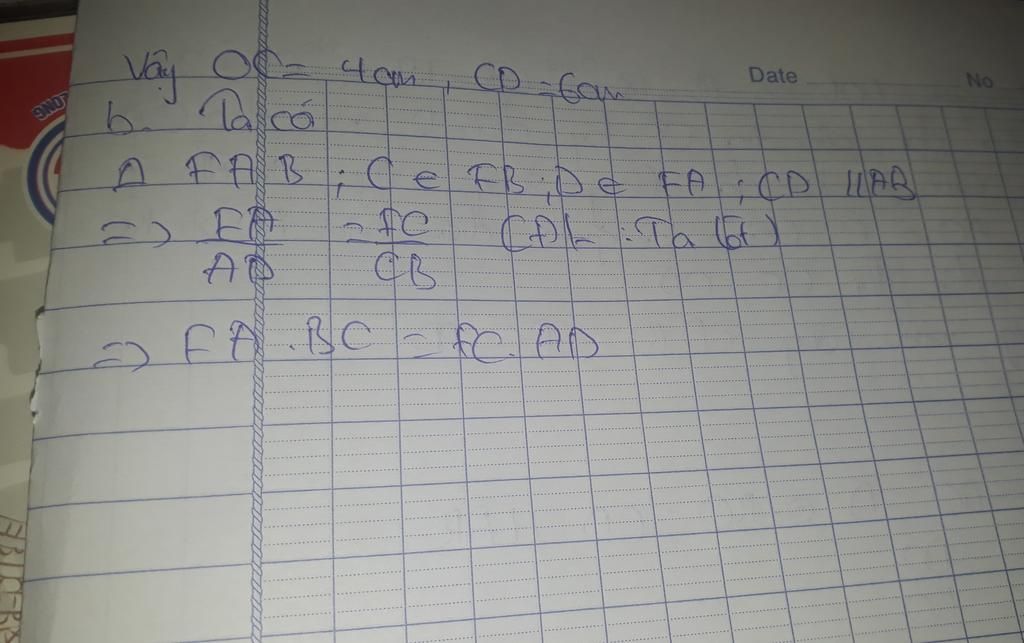 Vậy OC = 4cm, CD = 6cm
Date No
b. Ta có
Δ FAB ; C ∈ FB ; D ∈ FA ; CD // AB
=> FA/AD = FC/CB (ĐL : Ta lét)
=> FA . BC = FC . AD